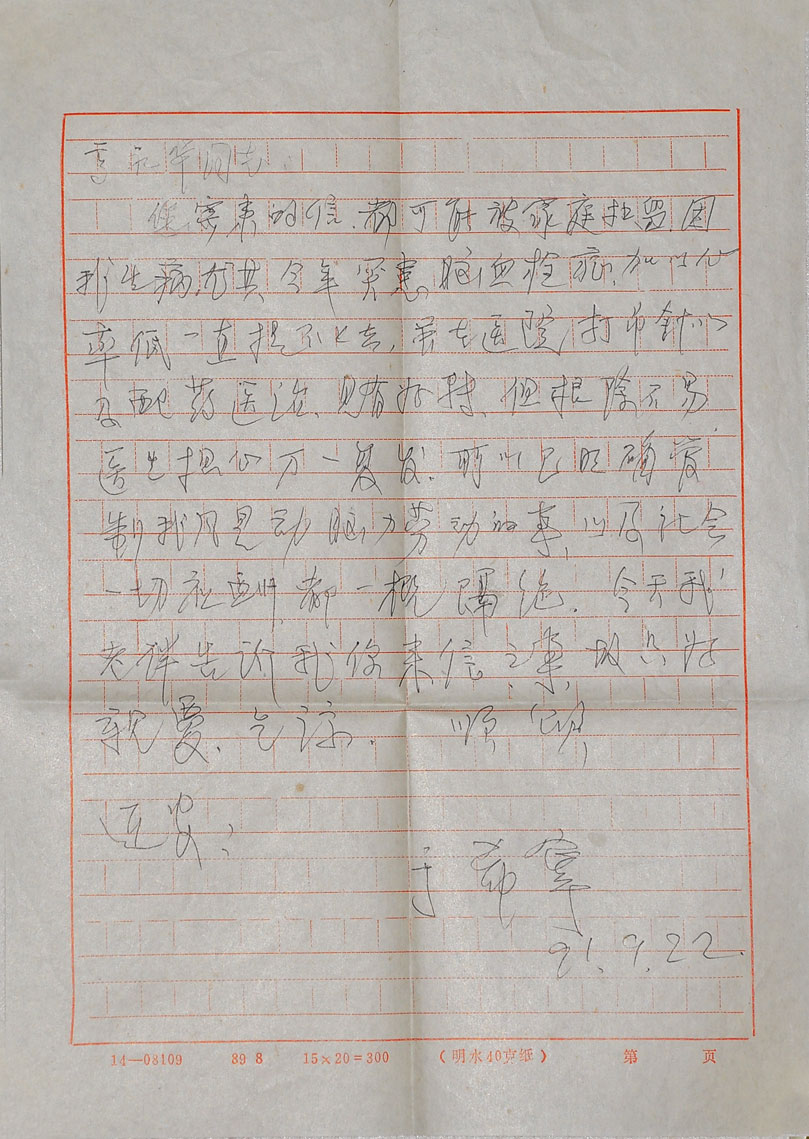 同志：
你寄来的信，都可能被家庭扣留，因
我生病，尤其今年突患脑血栓症，加以心
率低一直提不上去，虽在医院打吊针以
及配药医治，见有好转，但根除不易，
医生担心万一复发，所以已明确管
制我凡是动脑力劳动的事，以及社会
一切应酬，都一概隔绝。今天我
老伴告诉我你来信之事，故只好
祝爱，乞谅。 顺颂
近安！
于希宁
91.9.22.
14—08109 89 8 15×20=300 （明水40克纸） 第 页